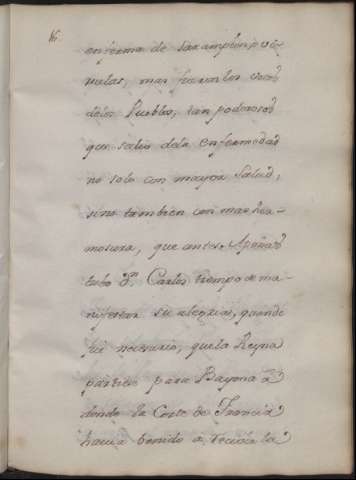 16.
enferma de sarampion, o vi-
ruelas, mas fueron los votos
delos Pueblos, tan poderosos
que salio dela enfermedad
no solo con mayor Salud,
sino tambien con mas her-
mosura, que antes. Apenas
tubo Dn. Carlos tiempo de ma-
nifestar su alegria, quando
fue necesario, que la Reyna
partiese para Bayona a
donde la Corte de Francia
havia benido a recivirla